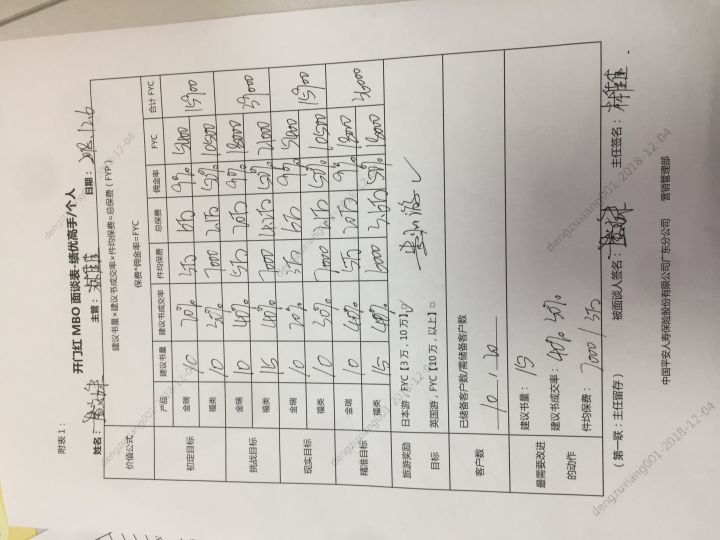 附表1：
开门红 MBO 面谈表-绩优高手/个人
姓名： 主管： 日期：2018.12.6
价值公式 建议书量×建议书成交率×件均保费=总保费（FYP）
保费*佣金率=FYC
产品 建议书量 建议书成交率 件均保费 总保费 佣金率 FYC 合计 FYC
初定目标 金瑞 10 20% 3万 6万 9% 5400 15900
福类 10 30% 7000 2.1万 50% 10500
挑战目标 金瑞 10 40% 5万 20万 9% 18000 39000
福类 15 40% 7000 4.2万 50% 21000
现实目标 金瑞 10 20% 3万 6万 9% 5400 15900
福类 10 30% 7000 2.1万 50% 10500
精准目标 金瑞 10 40% 5万 20万 9% 18000 36000
福类 15 40% 6000 3.6万 50% 18000
旅游奖励 日本游，FYC【3万，10万】
目标 英国游，FYC【10万，以上】□
客户数 已储备客户数/需储备客户数
10 / 20
最需要改进 建议书量：15
的动作 建议书成交率：40% 50%
件均保费：7000 / 5万
（第一联：主任留存） 被面谈人签名： 主任签名：
中国平安人寿保险股份有限公司广东分公司 营销管理部
dengzuxiang001-2018-12-04